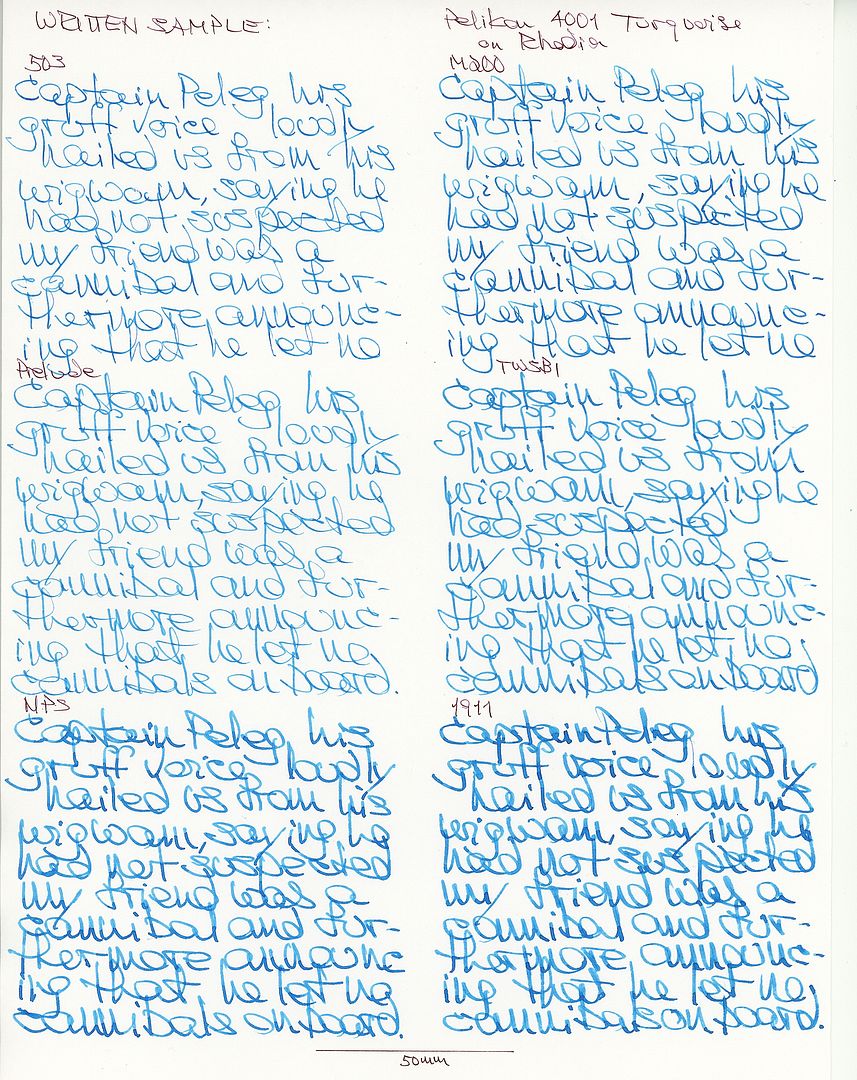 WRITTEN SAMPLE:
Pelikan 4001 Turquoise
on Rhodia
503
Captain Peleg his
gruff voice loudly
hailed us from his
wigwam, saying he
had not suspected
my friend was a
cannibal and fur-
thermore announc-
ing that he let no
M200
Captain Peleg his
gruff voice loudly
hailed us from his
wigwam, saying he
had not suspected
my friend was a
cannibal and fur-
thermore announc-
ing that he let no
Prelude
Captain Peleg his
gruff voice loudly
hailed us from his
wigwam, saying he
had not suspected
my friend was a
cannibal and fur-
thermore announc-
ing that he let no
cannibals on board.
TWSBI
Captain Peleg his
gruff voice loudly
hailed us from
wigwam, saying he
had suspected
my friend was a
cannibal and fur-
thermore announc-
ing that he let no
cannibals on board
NPS
Captain Peleg his
gruff voice loudly
hailed us from his
wigwam, saying he
had not suspected
my friend was a
cannibal and fur-
thermore announc
ing that he let no
cannibals on board.
1911
Captain Peleg his
gruff voice loudly
hailed us from his
wigwam, saying he
had not suspected
my friend was a
cannibal and fur-
thermore announc-
ing that he let no
cannibals on board.
50mm